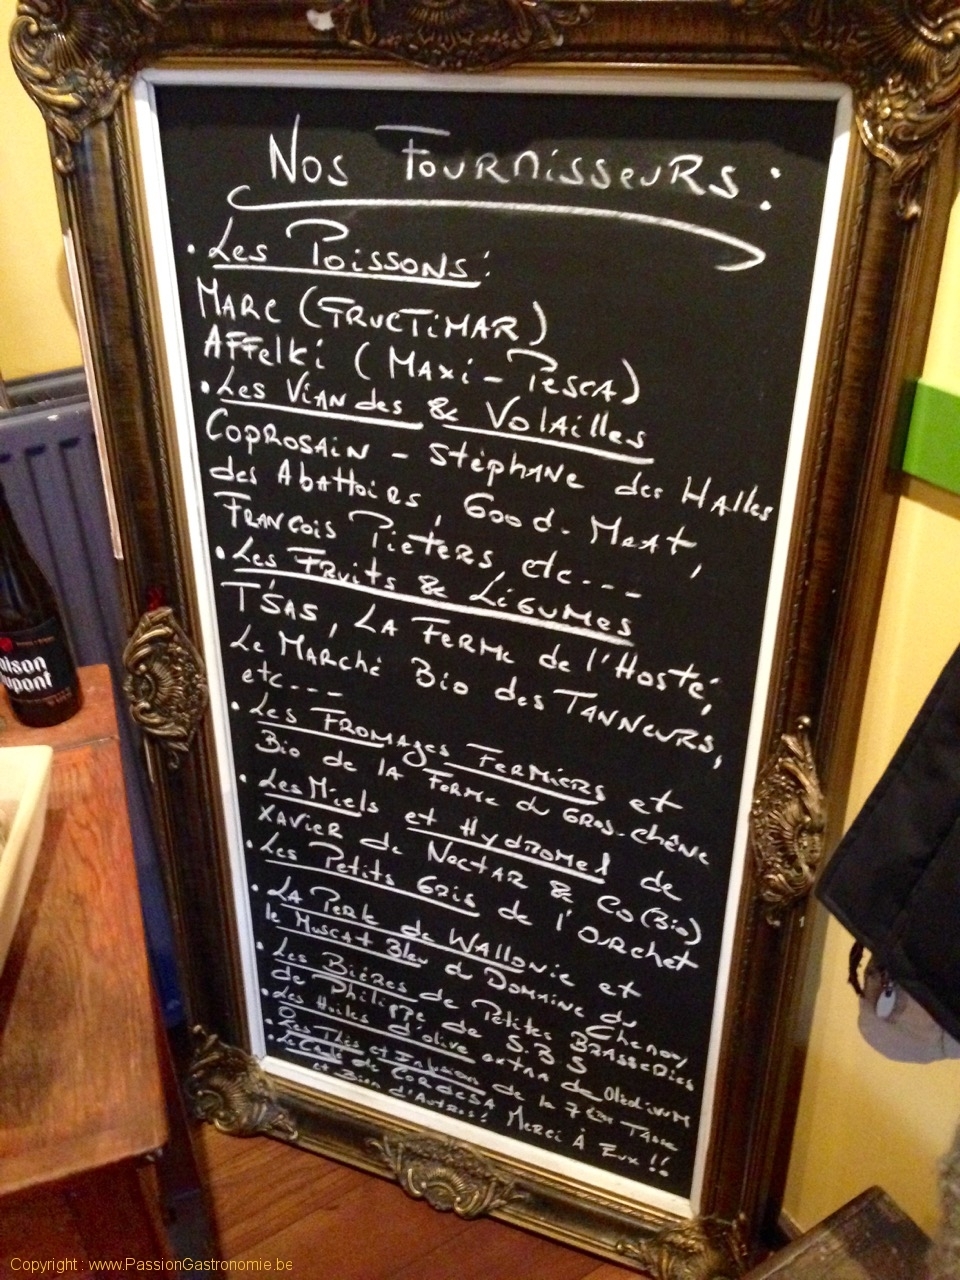 Nos Fournisseurs :
• Les Poissons :
Marc (Fructimar)
Affelki (Maxi-Pesca)
• Les Viandes & Volailles
Coprosain - Stéphane des Halles
des Abattoirs, Good. Meat,
Francois Pieters, etc...
• Les Fruits & Légumes
T'Sas, La Ferme de l'Hosté,
Le Marché Bio des Tanneurs,
etc...
• Les Fromages Fermiers et
Bio de la Ferme du Gros-chêne
• Les Miels et Hydromel de
Xavier de Nectar & Co (Bio)
• Les Petits Gris de l'Orchet
• La Perle de Wallonie et
le Muscat Bleu du Domaine du Chenoy
• Les Bières de Petites Brasseries
de Philippe de S.B.S
• Les Huiles d'olive extra de Oledivum
• Les Thés et Infusions de la 7ème Tasse
• Le Café de Cordesa
et Bien d'Autres! Merci à Eux !!
aison
upont
Copyright : www.PassionGastronomie.be